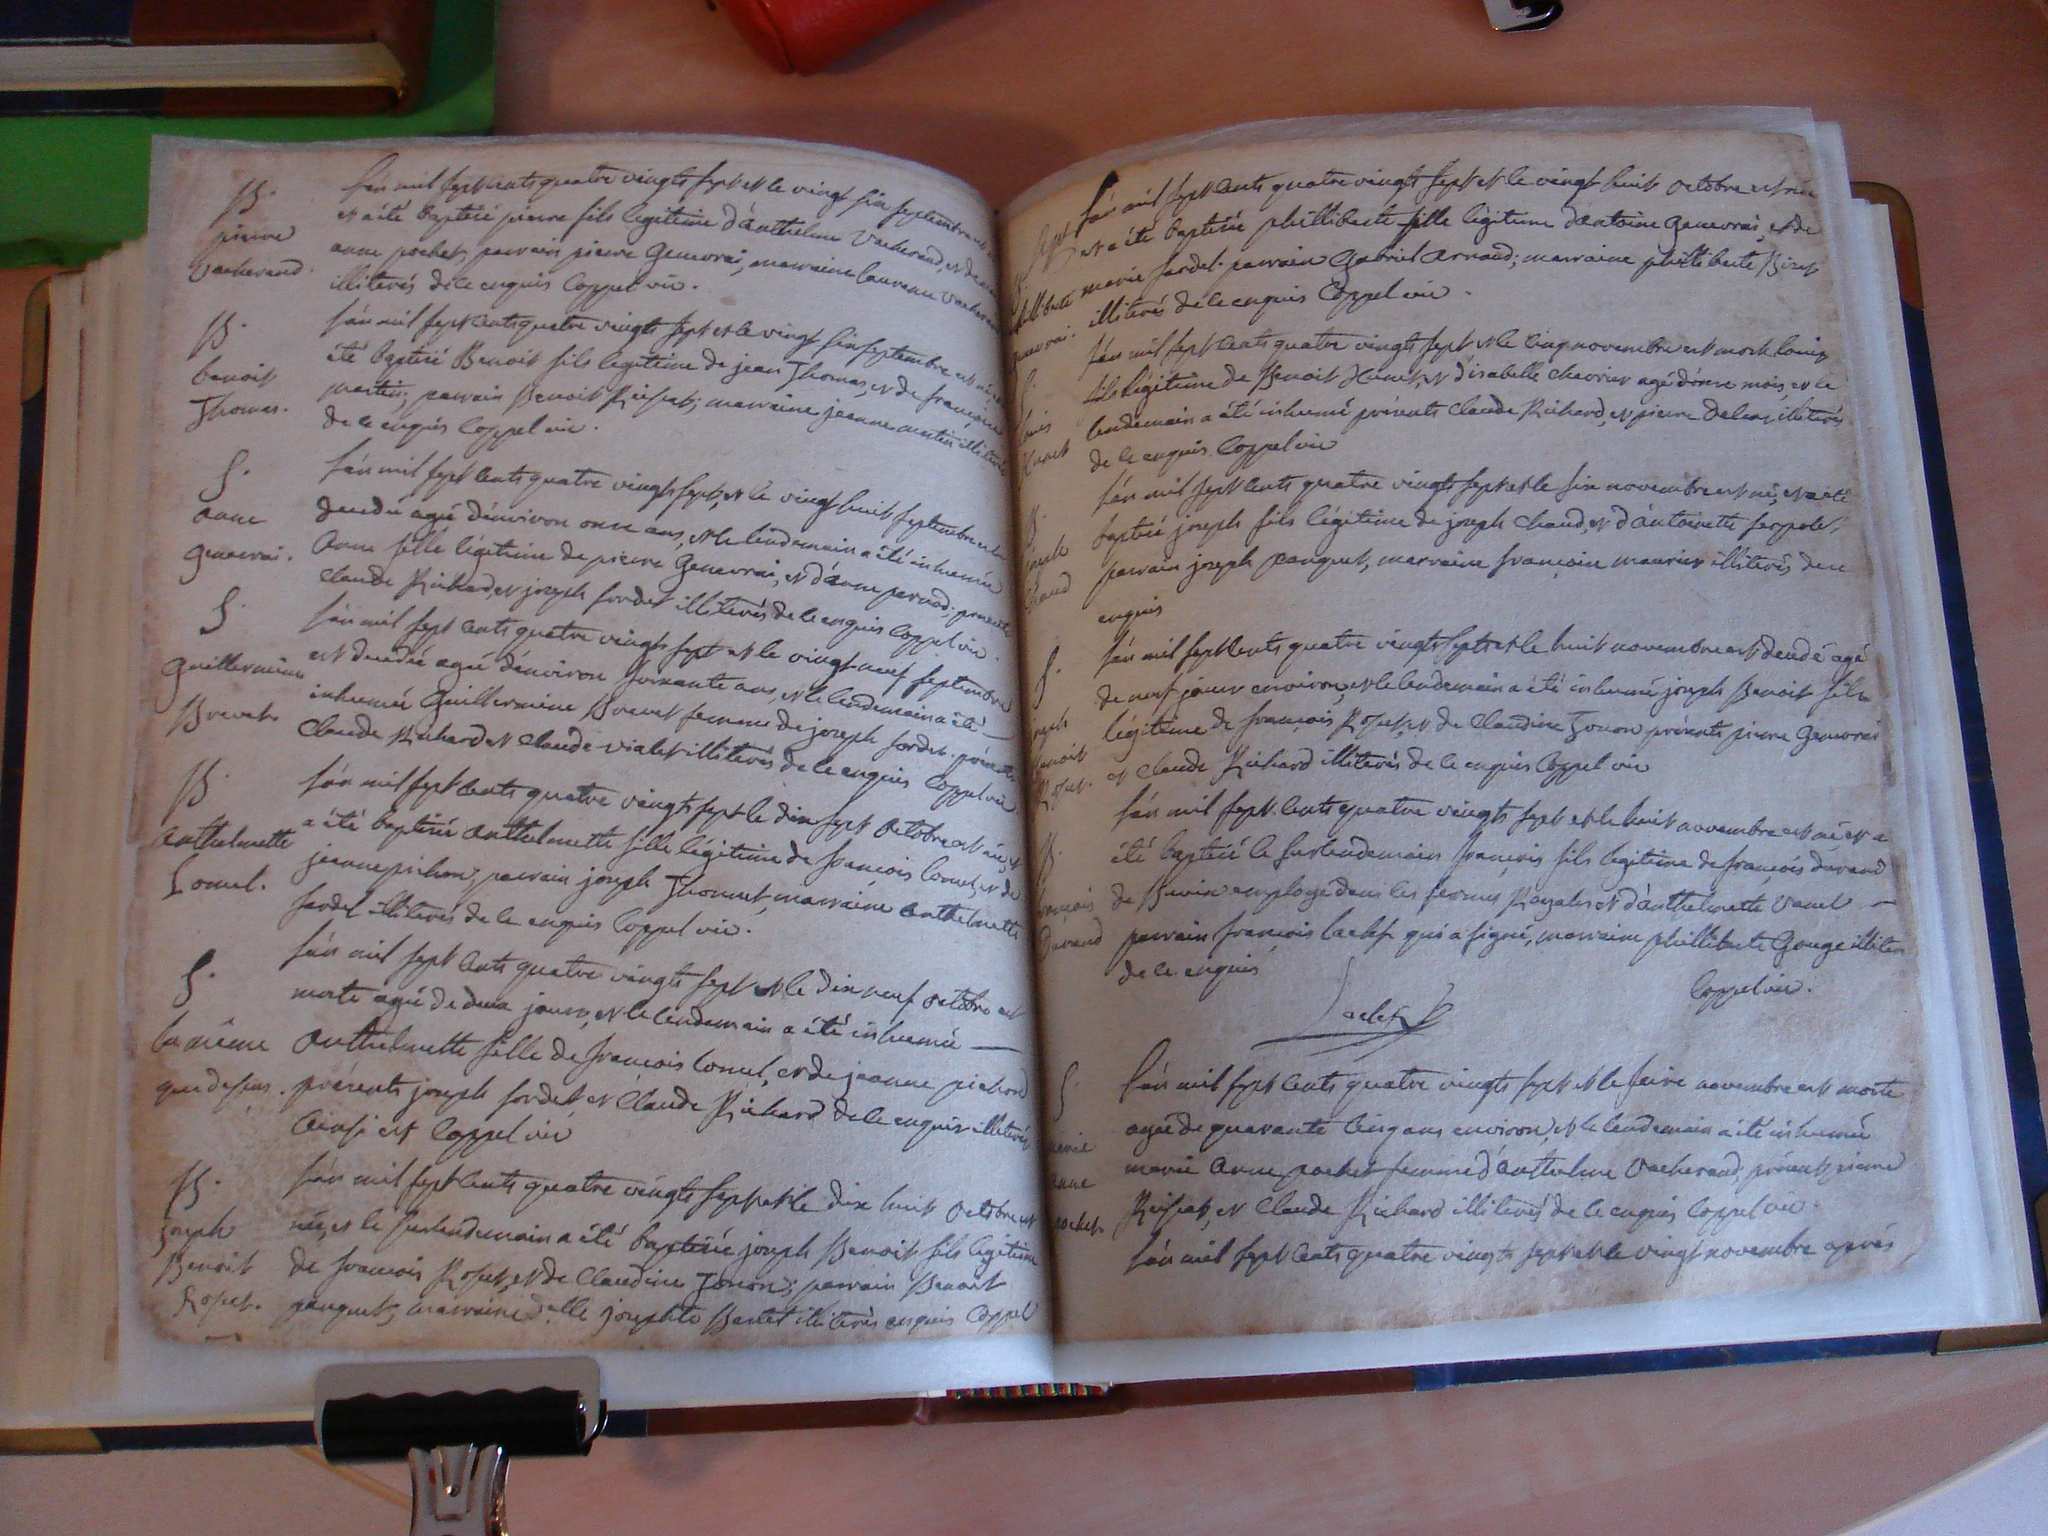 B.
pierre
Vacherand.
L'an mil sept cents quatre vingts sept et le vingt six septembre est
et a été baptisé pierre fils légitime d'anthelme Vacherand, et de
anne pochet, parrain pierre Genevrai, marraine laurence Vacherand
illiterés de ce enquis Coppel vic.
B
benoit
Thomas.
L'an mil sept cents quatre vingts sept et le vingt six septembre est né, et
été baptisé Benoit fils légitime de jean Thomas, et de françoise
martin; parrain Benoit Reisat; marraine jeanne martin illiterés
de ce enquis Coppel vic.
S.
anne
genevrai.
L'an mil sept cents quatre vingts sept, et le vingt huit septembre est
decedée agée d'environ onze ans, et le lendemain a été inhumée
Anne fille légitime de pierre Genevrai, et d'anne pernod; presents
claude Richard, et joseph fordet illiterés de ce enquis Coppel vic.
S.
Guillermine
Brevet
L'an mil sept cents quatre vingts sept et le vingt neuf septembre
est decedée agée d'environ soixante ans, et le lendemain a été
inhumée Guillermine Brevet femme de joseph fordet. présents
Claude Richard et claude vialet illiterés de ce enquis Coppel vic.
B.
anthelmette
Comel.
L'an mil sept cents quatre vingts sept le dix sept octobre est née, et
a été baptisée anthelmette fille légitime de francois Comel, et de
jeanne pichon, parrain joseph Thomet, marraine anthelmette
fardel illiterés de ce enquis Coppel vic.
S.
la même
que dessus.
L'an mil sept cents quatre vingts sept et le dix neuf octobre est
morte agée de deux jours, et le lendemain a été inhumée
Anthelmette fille de francois Comel, et de jeanne pichond
présents joseph fordet et Claude Richard de ce enquis illiterés
ainsi est Coppel vic
B.
joseph
Benoit
Rosset.
L'an mil sept cents quatre vingts sept et le dix huit octobre est
né, et le surlendemain a été baptisé joseph Benoit fils légitime
de francois Rosset, et de Claudine Jonon; parrain Benoit
panquet, marraine d.lle josephte Barret illiterés enquis Coppel
Genevrai.
L'an mil sept cents quatre vingts sept et le vingt huit octobre est née
et a été baptisée phillibertte fille légitime d'antoine Genevrai, et de
marie fardel. parrain Gabriel arnaud; marraine phillibertte Bizet
illiterés de ce enquis Coppel vic.
S.
louis
L'an mil sept cents quatre vingts sept et le cinq novembre est mort louis
fils légitime de Benoit Hanet, et d'isabelle chevrier agé d'onze mois, et le
lendemain a été inhumé présents claude Richard, et pierre illiterés
de ce enquis Coppel vic
B.
joseph
Chaud
L'an mil sept cents quatre vingts sept et le six novembre est né, et a été
baptisé joseph fils légitime de joseph chaud, et d'antoinette
parrain joseph panquet, marraine françoise maurier illiterés de ce
enquis
S.
joseph
benoit
Rosset.
L'an mil sept cents quatre vingts sept et le huit novembre est decedé agé
de neuf jours environ, et le lendemain a été inhumé joseph Benoit fils
légitime de françois Rosset, et de Claudine Jonon présents pierre Genevrai
et Claude Richard illiterés de ce enquis Coppel vic
B.
françois
Durand
L'an mil sept cents quatre vingts sept et le huit novembre est né, et a
été baptisé le surlendemain françois fils légitime de françois durand
de employé dans les fermes Royales et d'anthelmette Vanel
parrain françois qui a signé, marraine phillibertte Gouge illiterée
de ce enquis
Coppel vic.
S.
marie
anne
pochet.
L'an mil sept cents quatre vingts sept et le seize novembre est morte
agée de quarante cinq ans environ, et le lendemain a été inhumée
marie anne pochet femme d'anthelme Vacherand, présents pierre
Reisat, et Claude Richard illiterés de ce enquis Coppel vic.
L'an mil sept cents quatre vingts sept et le vingt novembre après